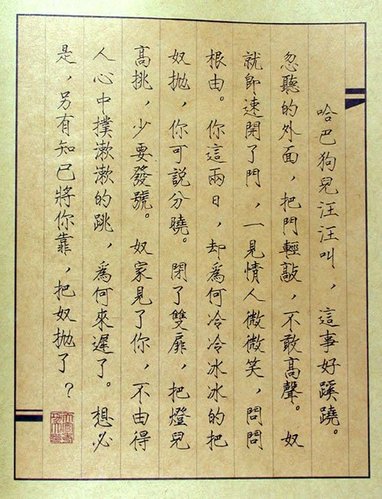 哈巴狗兒汪汪叫，這事好蹊蹺。
忽聽的外面，把門輕敲，不敢高聲。奴
就師速開了門，一見情人微微笑，問問
根由。你這兩日，却為何冷冷冰冰的把
奴拋，你可說分曉。閉了雙扉，把燈兒
高挑，少要發號。奴家見了你，不由得
人心中撲漱漱的跳，為何來遲了。想必
是，另有知已將你靠，把奴拋了？